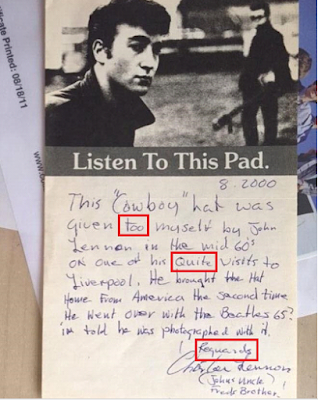 ficate Printed: 08/18/11
Listen To This Pad.
8.2000
This "Cowboy" hat was
given too myself by John
Lennon in the mid 60s
on one of his Quite visits to
Liverpool. He brought the Hat
Home From America the second time
He went over with the Beatles 65?
im told he was photographed with it.
! Reguards
Charles Lennon
(Johns Uncle) !
Freds Brother.